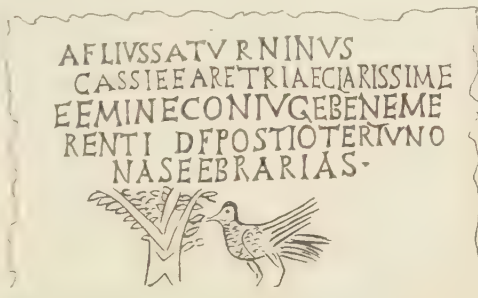 AFLIVSSATVRNINVS
CASSIEEARETRIAECLARISSIME
EEMINECONIVGEBENEME
RENTI DFPOSTIOTERTVNO
NASEEBRARIAS·